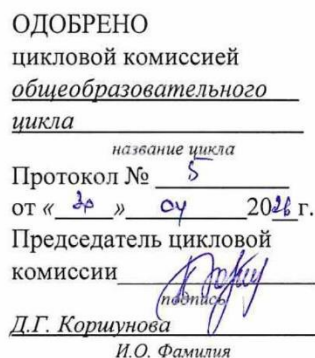 ОДОБРЕНО
цикловой комиссией
общеобразовательного
цикла
название цикла
Протокол № 5
от « 30 » 04 2026 г.
Председатель цикловой
комиссии
подпись
Д.Г. Коршунова
И.О. Фамилия